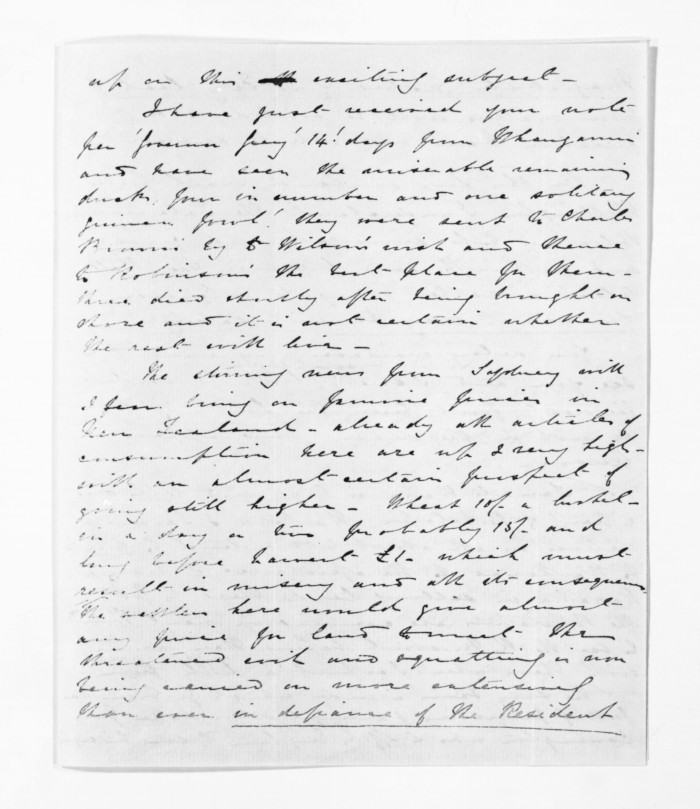 up on this exciting subject -
I have just received your note
per 'Governor Grey' 14 days from Whanganui
and have seen the miserable remaining
ducks, four in number and one solitary
guinea fowl! they were sent to Charles
Brown's by Wilson's wish and thence
to Robinson's the best place for them -
three died shortly after being brought on
shore and it is not certain whether
the rest will live -
The stirring news from Sydney will
I fear bring on famine prices in
New Zealand - already all articles of
consumption here are up & very high -
with an almost certain prospect of
going still higher - Wheat 10/- a bushel -
in a day or two probably 15/- and
long before harvest £1 - which must
result in misery and all its consequences
The settlers here would give almost
any price for land to meet the
threatened evil and squatting is now
being carried on more extensively
than ever in defiance of the Resident